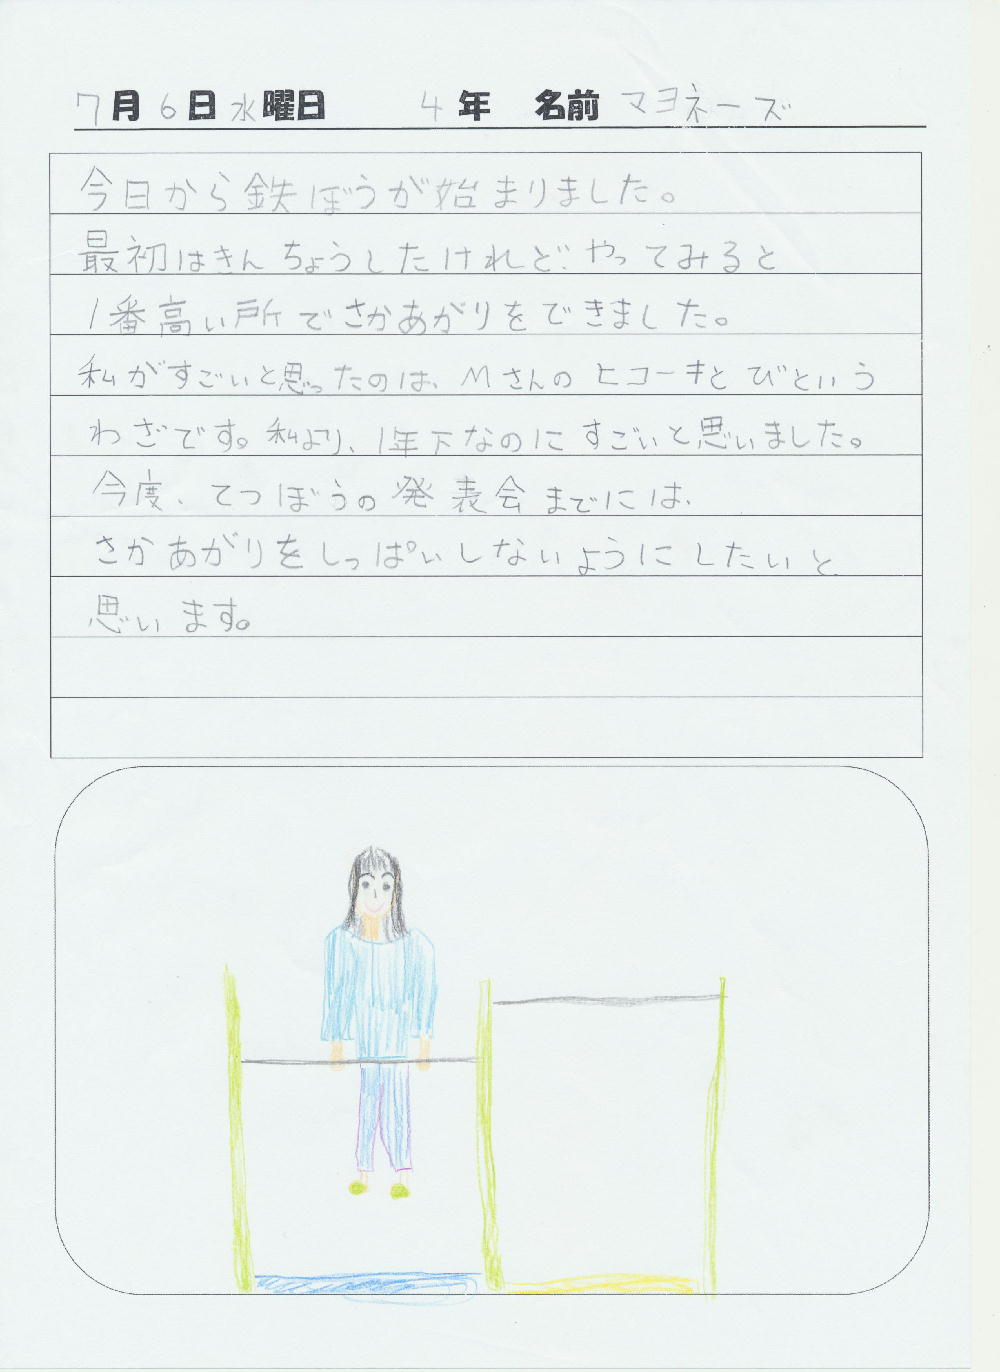 7月6日水曜日 4年 名前 マヨネーズ
今日から鉄ぼうが始まりました。
最初はきんちょうしたけれど、やってみると
1番高い所でさかあがりをできました。
私がすごいと思ったのは、Mさんのヒコーキとびという
わざです。私より、1年下なのにすごいと思いました。
今度、てつぼうの発表会までには、
さかあがりをしっぱいしないようにしたいと
思います。